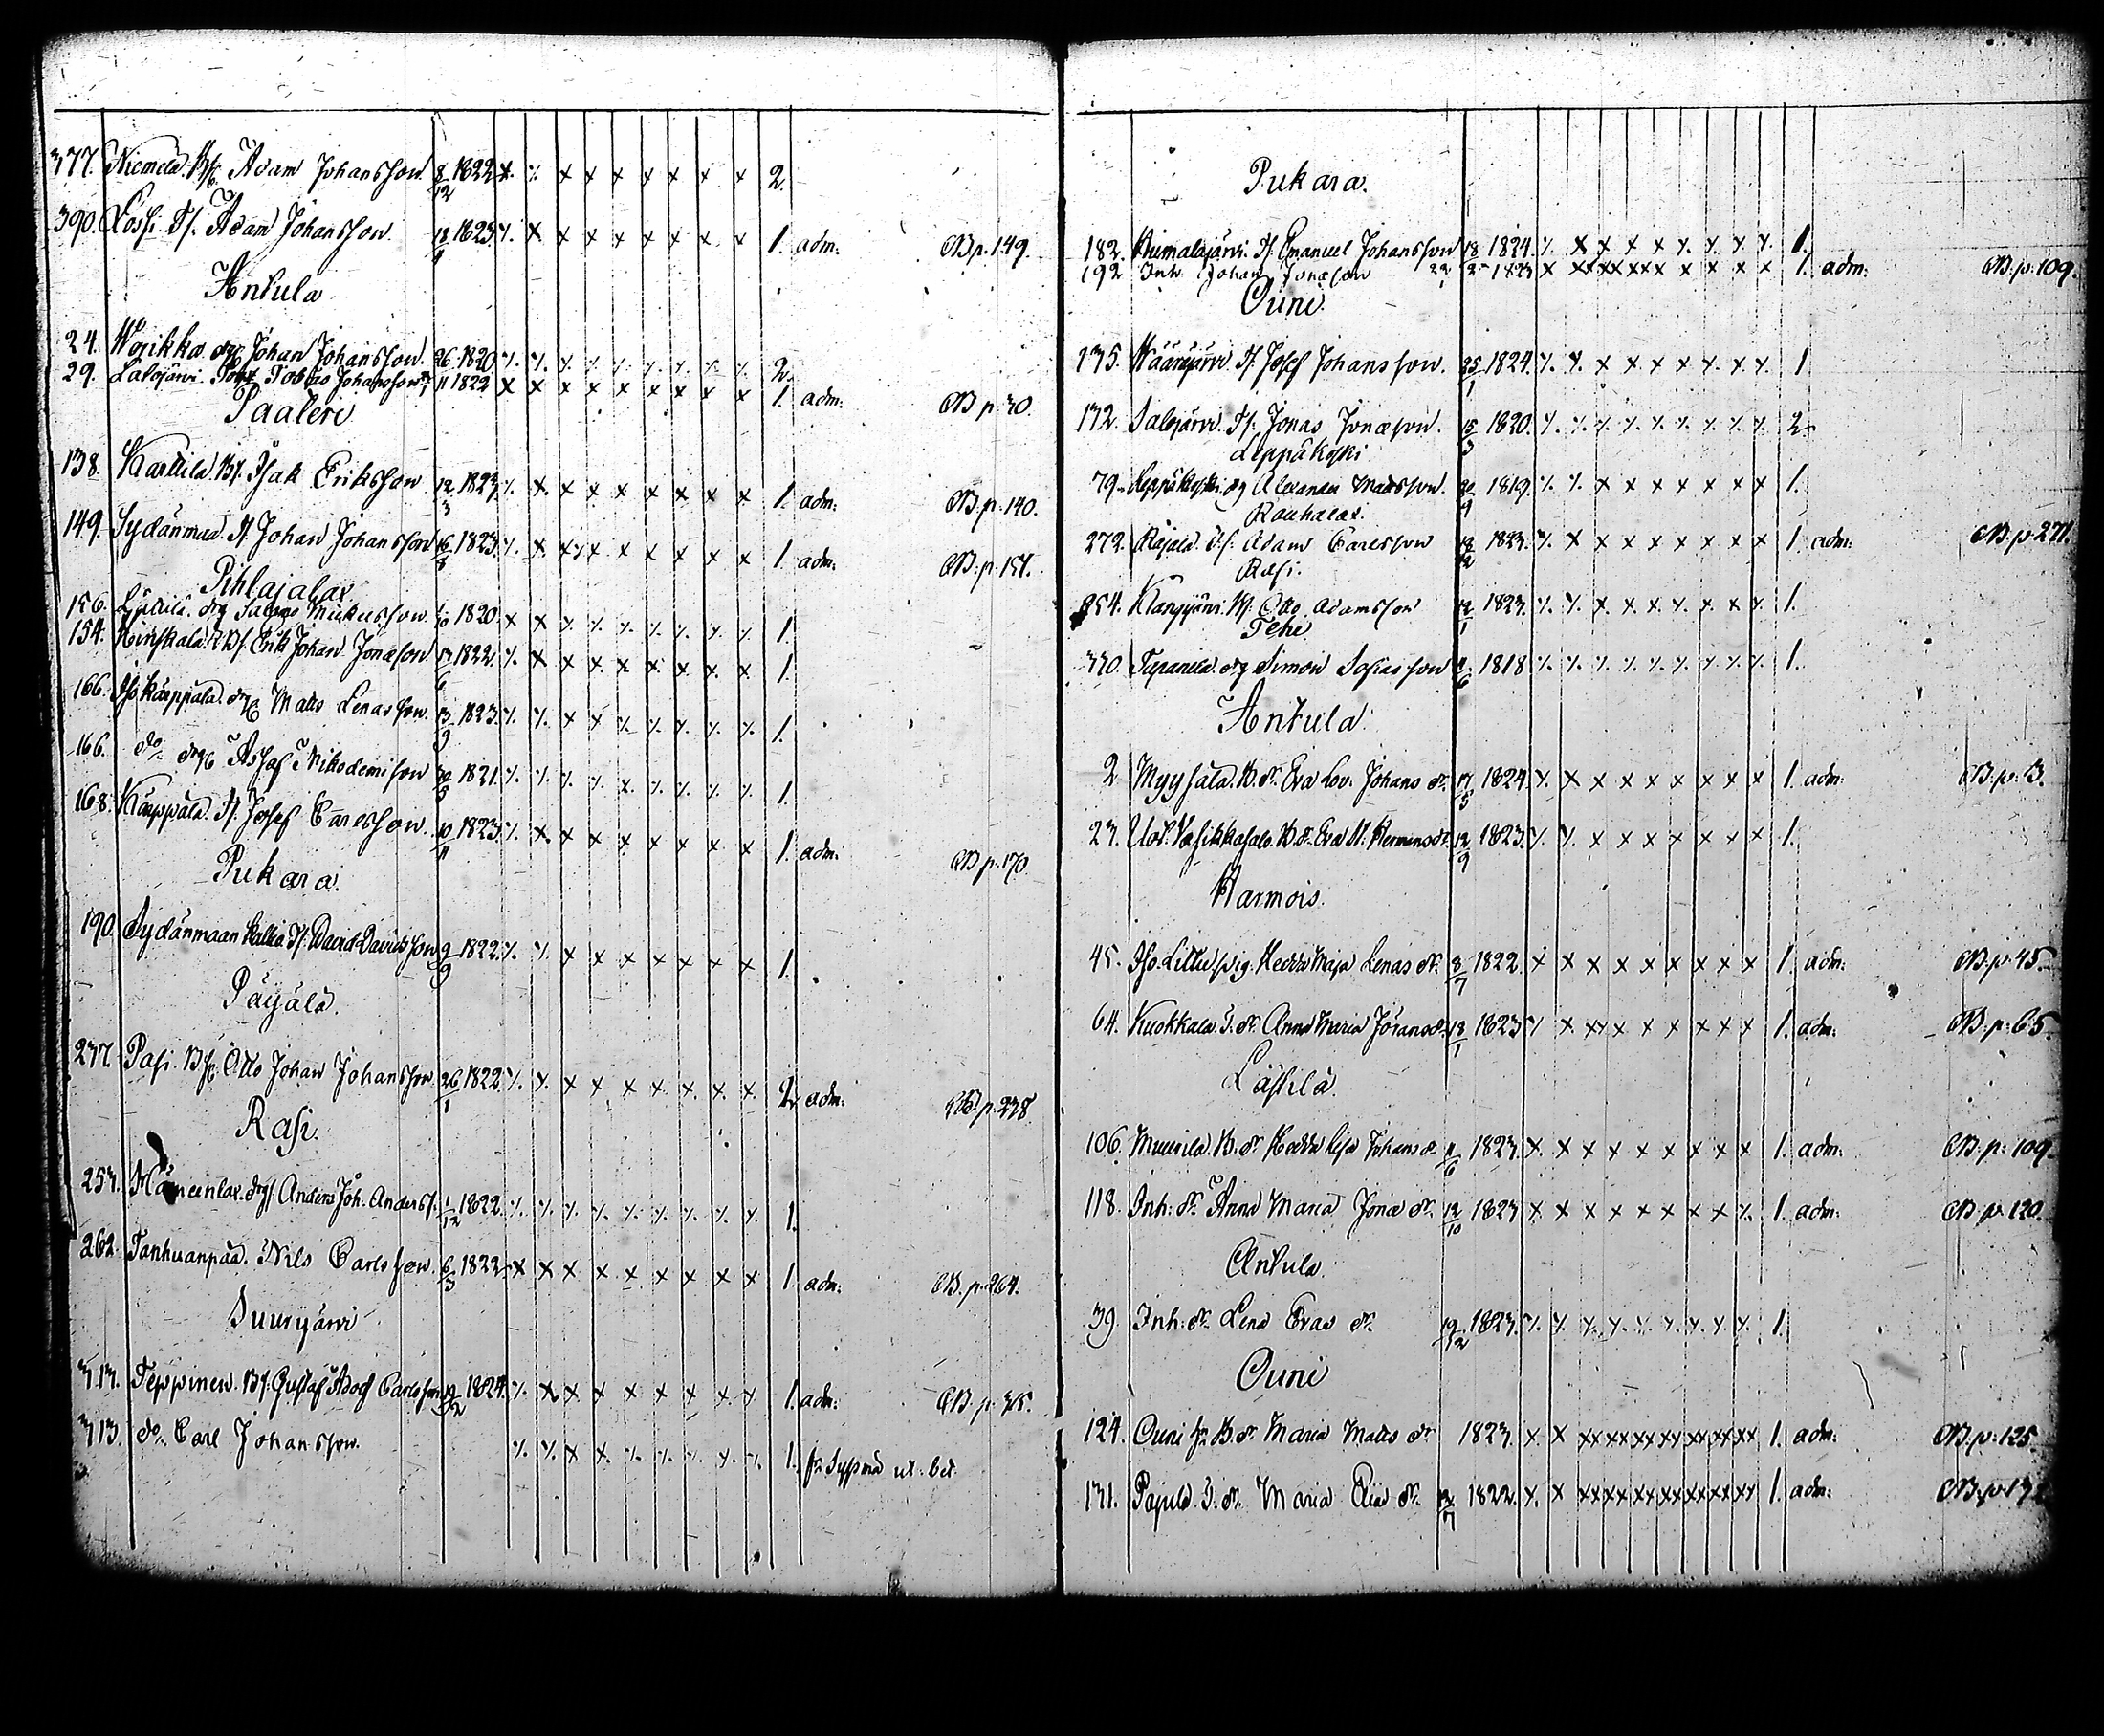 377. Niemelä. Bs. Adam Johansson 8/12 1822 x. ⁒ x x x x x x x 2.
390. Lossi. Ts. Adam Johansson 18/1 1823 ⁒. x x x x x x x x 1. adm: CB p. 149.
Ankula
24. drg Johan Johansson. 26. 1820 ⁒. ⁒. ⁒. ⁒. ⁒. ⁒. ⁒. ⁒. ⁒. 2.
29. Salojärvi. Tobias Johansson 11 1822 x x x x x x x x x 1. adm: CB p. 30.
Paaleri
138. Karttila Bs. Isak Eriksson 12/3 1823 ⁒. x x x x x x x x 1. adm: CB. p. 140.
149. Sydänmaa. Ts. Johan Johansson 16/8 1823 ⁒. x xx x x x x x x 1. adm: CB. p. 151.
Pihlajalax
156. drg Mickelsson 1/10 1820. x x ⁒. ⁒. ⁒. ⁒. ⁒. ⁒. ⁒. 1.
154. Bs. Erik Johan Jonæson 13/6 1822. ⁒. x x x x x x x x 1.
166. Iso käppälä. drg Matts Lenasson. 13/9 1823. ⁒. ⁒. x x ⁒. ⁒. ⁒. ⁒. ⁒. 1.
166. do. drg Assaf Nikodemisson 30/5 1821. ⁒. ⁒. ⁒. ⁒. x. ⁒. ⁒. ⁒. ⁒. 1.
168. Käppälä. Ts. Josef Carlsson 10/11 1823. ⁒. x. x x x x x x x 1. adm: CB p. 170
Pukara.
190. Sydänmaan Kallio Ts. David Davidsson 9/9 1822. ⁒. ⁒. x x x x x x x 1.
Päijälä.
237. Pasi. Bs. Otto Johan Johansson 26/1 1822. ⁒. ⁒. x x x x x x x 2. adm: CB. p. 238
Rasi.
253. drg. Anders Joh. Anderss. 1/12 1822. ⁒. ⁒. ⁒. ⁒. ⁒. ⁒. ⁒. ⁒. ⁒. 1.
262. Tanhuanpää. Nils Carlsson 6/3 1822. x x x x x x x x x 1. adm: CB. p. 264.
Suurijärvi
313. Teppinen. Bs. Gustaf Adolf Carlsson 19/12 1824. ⁒. x x x x x x x x 1. adm: CB. p. 315.
313. do. Carl Johansson. ⁒. ⁒. x x. ⁒. ⁒. ⁒. ⁒. ⁒. 1. fr. Sysmä ut. bet.
Pukara.
182. Himalajärvi. Ts. Emanuel Johansson 18 1824. ⁒. x x x x ⁒. ⁒. ⁒. ⁒. 1.
192 Inh Johan Jonæson 22 1823 x xx xx xx x x x x x 1. adm: CB. p. 109.
Ouni.
135. Wäärijärvi. Ts. Josef Johansson. 25/1 1824. ⁒. ⁒. x x x x x x x 1
132. Salojärvi. Ts. Jonas Jonæson. 15/3 1820. ⁒. ⁒. ⁒. ⁒. ⁒. ⁒. ⁒. ⁒. ⁒. 2.
Leppäkoski
79. Leppäkoski. drg Alexander Mattsson. 1819. ⁒. ⁒. x x x x x x x 1.
Rauhalax.
272. Rajala. Ts. Adam Carlsson 1823. ⁒. x x x x x x x x 1. adm: CB. p. 271.
Rasi.
254. Kangijärvi. Bs. Otto Adamsson 12/1 1823. ⁒. ⁒. x x x x x x x 1.
Tehi
330. Tapanila. drg Simon Sofiasson 1818 ⁒. ⁒. ⁒. ⁒. ⁒. ⁒. ⁒. ⁒. ⁒. 1.
Ankula
2. Myysälä. B. dr. Eva Lov. Johans dr. 17/5 1824. ⁒. x x x x x x x x 1. adm: CB. p. 3.
23. Wesikkasalo. B. dr. Eva U. Hermansdr. 12/9 1823. ⁒. ⁒. x x x x x x x 1.
Harmois.
45. Iso Littu. pig. Hedda Maja Lenas dr. 8/7 1822. x x x x x x x x x 1. adm: CB. p. 45.
64. Kuokkala. T. dr. Anna Maria Göransdr. 18/1 1823 ⁒ x xx x x x x x x 1. adm: CB. p. 65.
Läslilä.
106. Muurila. B. dr. Hedda Lisa Johans dr 11/6 1823. x. x x x x x x x x 1. adm: CB. p. 109.
118. Inh. dr. Anna Maria Jonæ dr. 12/10 1823 x. x x x x x x x x. 1. adm: CB. p. 120.
Ankula.
39. Inh. dr. Lena Evas dr. 19/12 1823. ⁒. ⁒. ⁒. ⁒. ⁒. ⁒. ⁒. ⁒. ⁒. 1.
Ouni
124. Ouni B. dr. Maria Matts dr. 1823. x. x xx xx xx xx xx xx xx 1. adm: CB. p. 125.
131. Pajula. T. dr. Maria dr. 1822. x. x xx xx xx xx xx xx xx 1. adm: